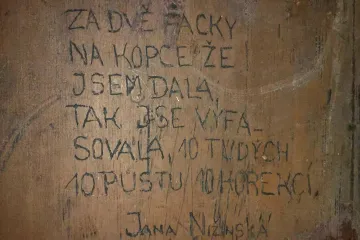 ZA DVĚ FACKY
NA KOPCE ŽE
JSEM DALA,
TAK JSE VYFA-
SOVALA, 10 TVDÝCH
10 PUSTU, 10 KOREKCÍ.
JANA NIŽINSKÁ